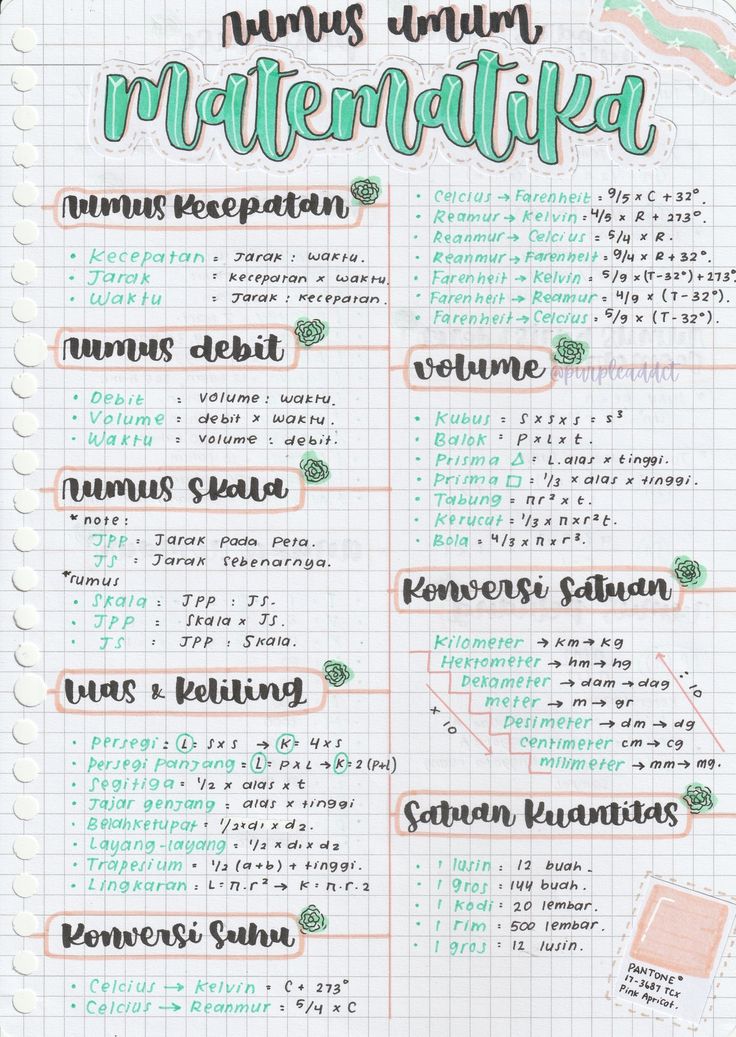 rumus umum
matematika
rumus kecepatan
• Kecepatan = Jarak : waktu.
• Jarak = kecepatan x waktu.
• Waktu = Jarak : kecepatan.
rumus debit
• Debit : Volume : waktu.
• Volume = debit x waktu.
• Waktu = volume : debit.
rumus skala
*note :
JPP = Jarak Pada Peta.
JS = Jarak Sebenarnya.
*rumus
• Skala : JPP : JS.
• JPP = Skala x JS.
• JS = JPP : Skala.
luas & keliling
• persegi : L = s x s → K = 4 x s
• persegi panjang = L = p x L → K = 2 (p+l)
• Segitiga = 1/2 x alas x t
• Jajar genjang = alas x tinggi
• Belahketupat = 1/2 x d1 x d2.
• Layang-layang = 1/2 x d1 x d2
• Trapesium = 1/2 (a+b) + tinggi.
• Lingkaran : L = π.r² → K = π.r.2
Konversi Suhu
• Celcius → Kelvin = C + 273°
• Celcius → Reanmur = 5/4 x C
• Celcius → Farenheit = 9/5 x C + 32°.
• Reamur → Kelvin = 4/5 x R + 273°.
• Reanmur → Celcius = 5/4 x R.
• Reanmur → Farenheit = 9/4 x R + 32°.
• Farenheit → Kelvin = 5/9 x (T-32°) + 273°
• Farenheit → Reamur = 4/9 x (T-32°).
• Farenheit → Celcius = 5/9 x (T-32°).
volume
@purpleaddct
• Kubus = s x s x s = s³
• Balok = P x L x t.
• Prisma △ = L.alas x tinggi.
• Prisma □ = 1/3 x alas x tinggi.
• Tabung = πr² x t.
• Kerucut = 1/3 x π x r²t.
• Bola = 4/3 x π x r³.
Konversi Satuan
Kilometer → km → kg
Hektometer → hm → hg
Dekameter → dam → dag
meter → m → gr
Desimeter → dm → dg
centimeter cm → cg
milimeter → mm → mg.
x 10
: 10
Satuan Kuantitas
• 1 lusin = 12 buah.
• 1 gros = 144 buah.
• 1 kodi = 20 lembar.
• 1 rim = 500 lembar.
• 1 gros = 12 lusin.
PANTONE®
17-3687 TCX
Pink Apricot.